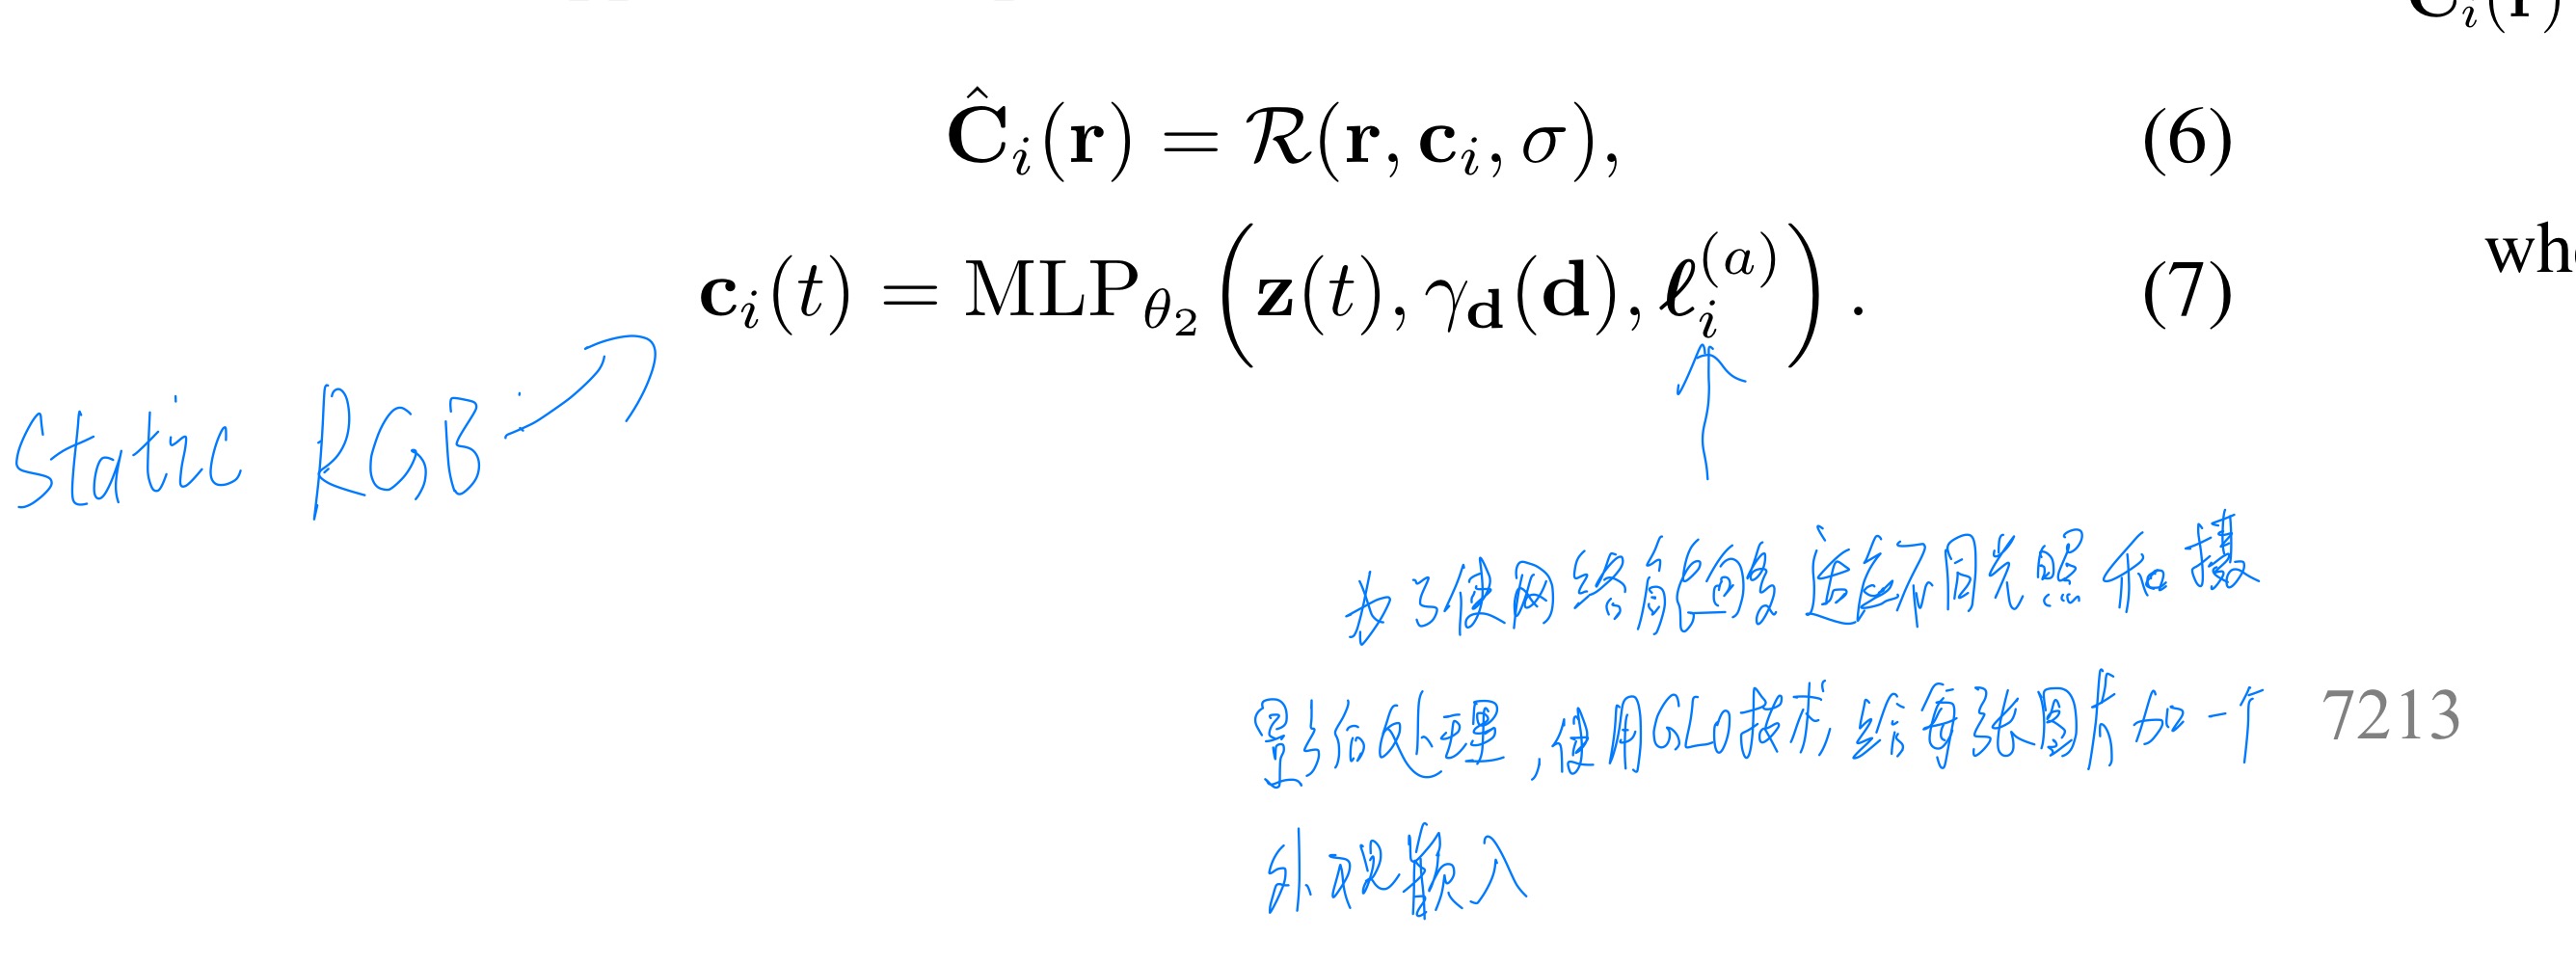 Ĉᵢ(r)
Ĉᵢ(r) = ℛ(r, cᵢ, σ), (6)
cᵢ(t) = MLP_θ₂ (z(t), γ_d(d), ℓᵢ^(a)) . (7)
Static RGB
为了使网络能够适应不同光照和摄
影后处理,使用GLO技术,给每张图片加一个
外观嵌入
7213